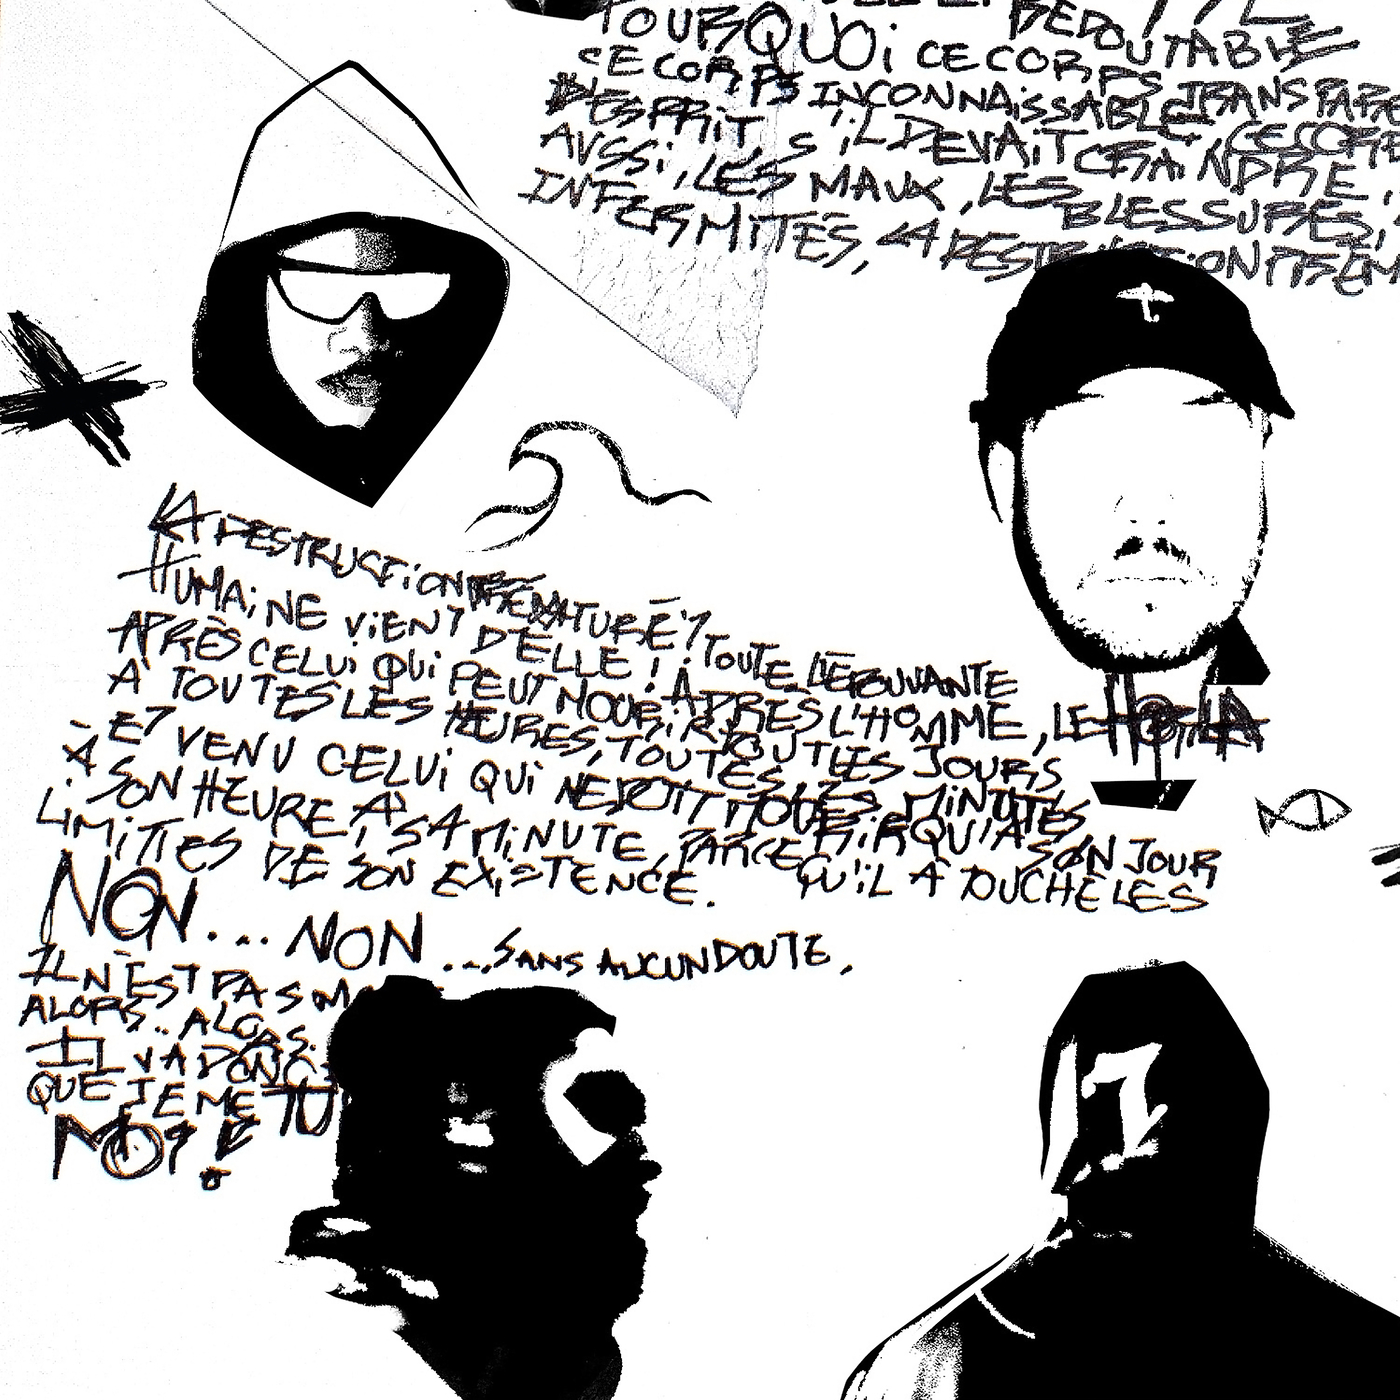 REDOUTABLE
POURQUOi CE CORPS TRANSPARE
CE CORPS INCONNAiSSABLE, CE CORPS
D'ESPRiT, S'iL DEVAiT CRAiNDRE,
AUSSi, LES MAUX, LES BLESSURES,
INFERMITÉS, LA DESTRUCTiON PRÉM
LA DESTRUCTiON PRÉMATURÉ?
HUMAiNE ViENT D'ELLE! TOUTE L'ÉPOUVANTE
APRÈS CELUi QUi PEUT MOURiR APRÈS L'HOMME, LE HORLA
À TOUTES LES HEURES, TOUS LES JOURS
TOUTES LES MiNUTES
ET VENU CELUi QUi NE DOiT MOURiR QU'À SON JOUR
À SON HEURE, À SA MiNUTE, PARCE QU'iL À TOUCHÉ LES
LiMiTES DE SON EXiSTENCE.
NON... NON ...SANS AUCUN DOUTE,
IL N'EST PAS M
ALORS.. ALORS.
IL VA DONC
QUE JE ME TU
MOi!
17